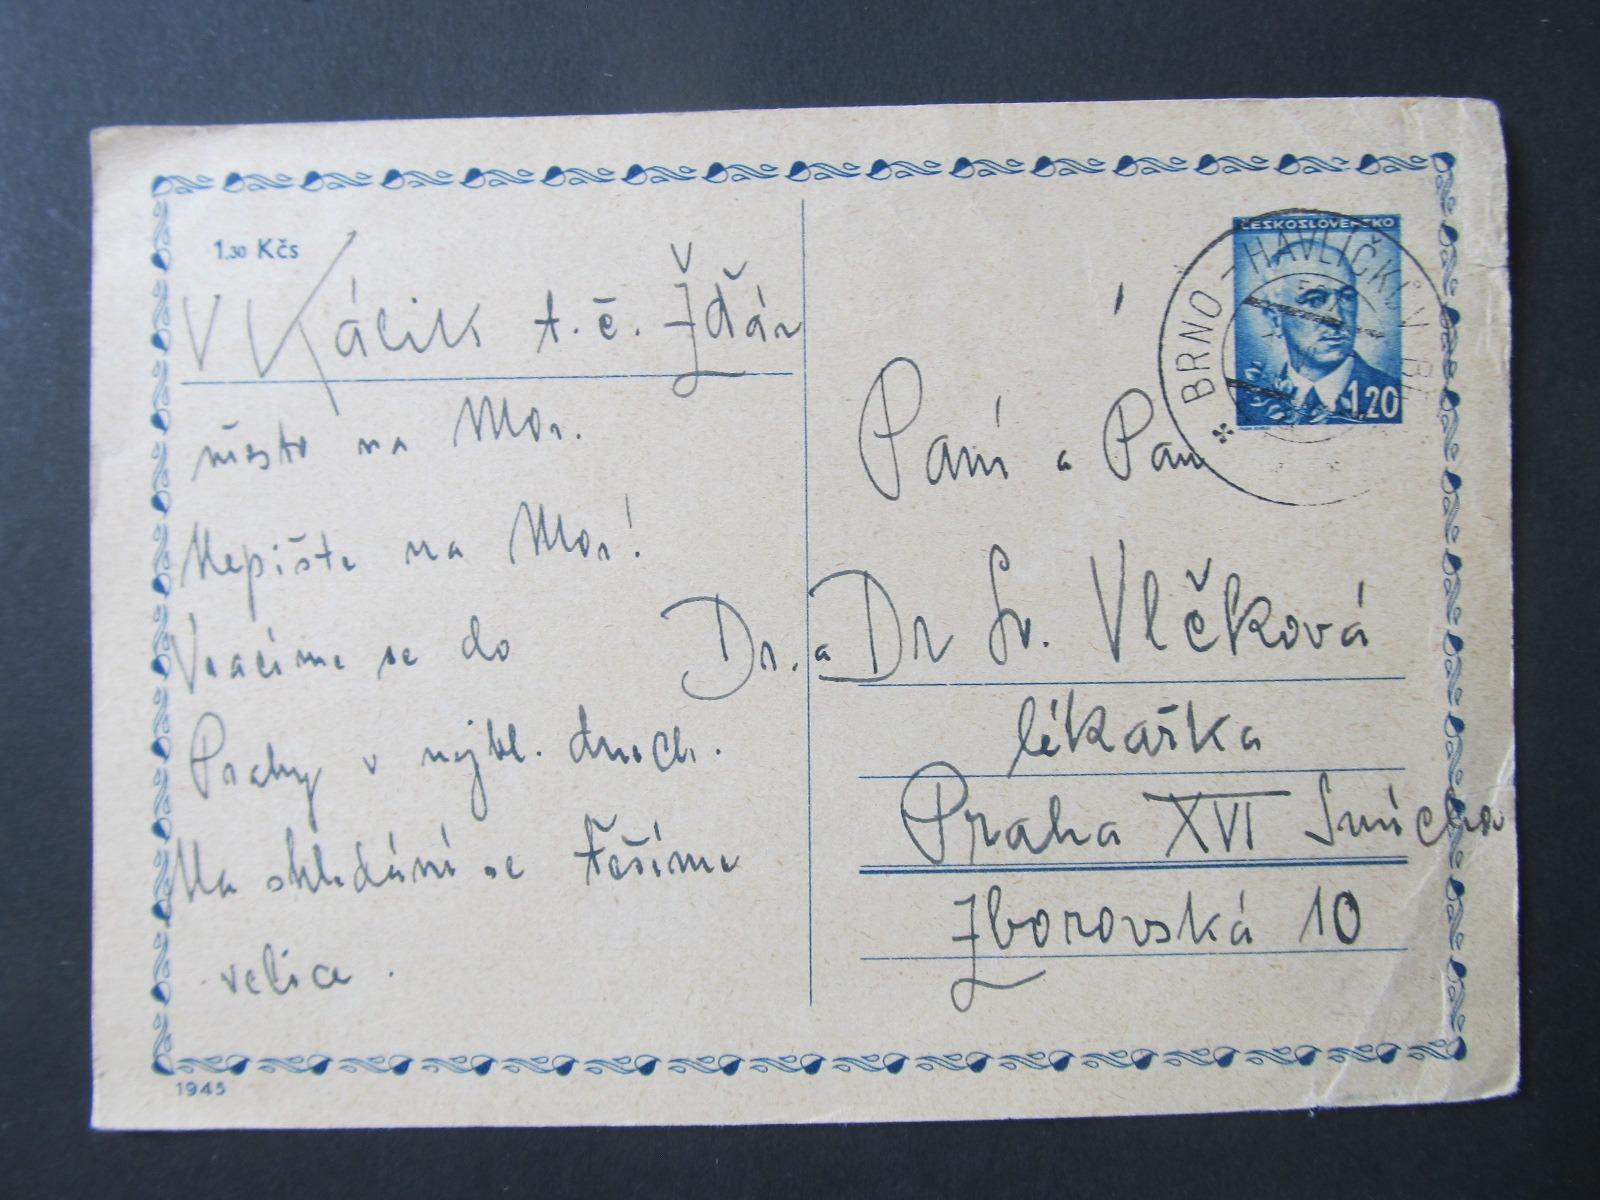 1.30 Kčs
V Kálik t. č. Žďár
město na Mor.
Nepište na Mor!
Vracíme se do
Prahy v nejbl. dnech.
Na shledání se těšíme
velice.
1945
ČESKOSLOVENSKO
1,20
BRNO - HAVLÍČK
Paní a Pán
Dr. a Dr Sv. Vlčková
lékařka
Praha XVI Smíchov
Zborovská 10